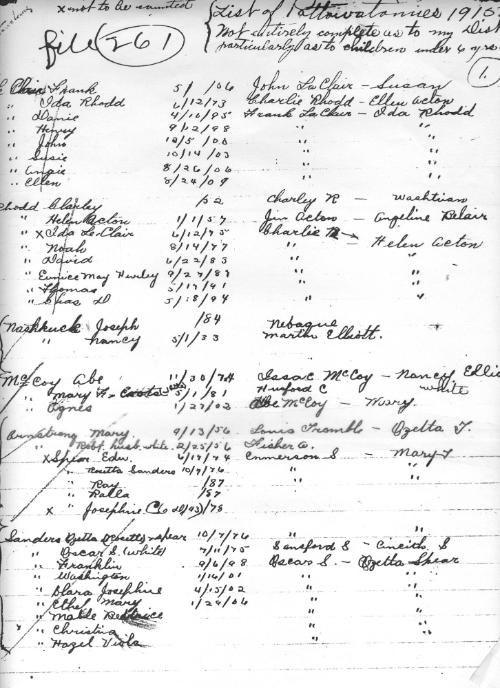 x not to be counted
List of Pottawatomies 1916.
file (261
Not entirely complete as to my Dist
particularly as to children under 6 yrs
1.
Clair Frank 5/ 1/06 John LaClair - Susan
" Ida Rhodd 6/12/73 Charlie Rhodd - Ellen Acton
" 4/10/95 Frank LaClair - Ida Rhodd
" Henry 9/2/98 " "
" John 12/5/00 " "
" Susie 10/14/03 " "
" Angie 8/26/06 " "
" Ellen 8/24/09 " "
Rhodd Charley /52 Charley R -
" Helen Acton 1/1/57 Jim Acton - Angeline
" x Ida LaClair 6/12/75 Charlie R - Helen Acton
" Noah 8/14/77 " "
" David 6/22/83 " "
" Eunice May Hurley 9/27/87 " "
" Thomas 5/17/91 " "
" Chas D 5/18/94 " "
Nashkuck Joseph /84
" Nancy 5/1/33 Martha Elliott.
McCoy Abe 11/30/74 Isaac McCoy - Nancy
" Mary F. 5/1/81 Huxford C white
" Agnes 1/27/02 Abe McCoy - Mary.
Armstrong Mary 9/13/56 Louis Tromble - Ozetta T.
" Robt. husb. white. 2/25/56 Fisher A.
x Spear Edw. 6/17/74 Emmerson S - Mary T
" Rozetta Sanders 10/7/76 " "
" Ray /87 " "
" Ralla /87
x " Josephine /78
Sanders Ozetta Spear 10/7/76 "
" Oscar S. (white) 7/11/75 Sanford S - S
" Franklin 9/6/98 Oscar S. - Ozetta Spear
" Washington 1/16/01 " "
" Clara Josephine 4/15/02 " "
" Ethel Mary 1/29/06 " "
" Mable " "
" Christina "
" Hazel Viola "